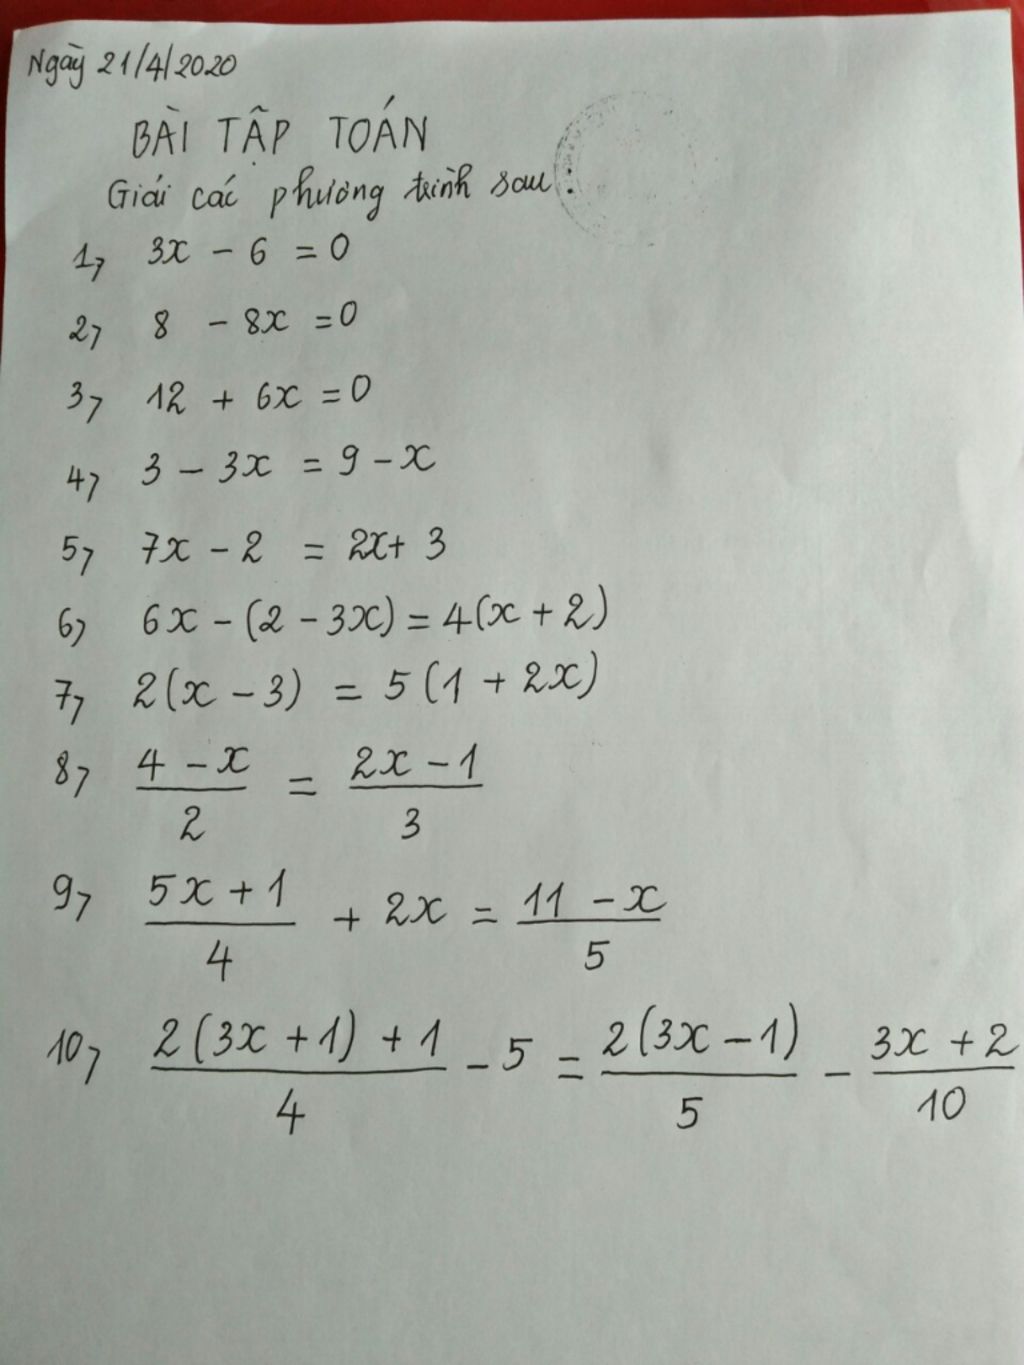 Ngày 21/4/2020
BÀI TẬP TOÁN
Giải các phương trình sau:
1, 3x - 6 = 0
2, 8 - 8x = 0
3, 12 + 6x = 0
4, 3 - 3x = 9 - x
5, 7x - 2 = 2x + 3
6, 6x - (2 - 3x) = 4(x + 2)
7, 2(x - 3) = 5(1 + 2x)
8, (4 - x)/2 = (2x - 1)/3
9, (5x + 1)/4 + 2x = (11 - x)/5
10, (2(3x + 1) + 1)/4 - 5 = (2(3x - 1))/5 - (3x + 2)/10